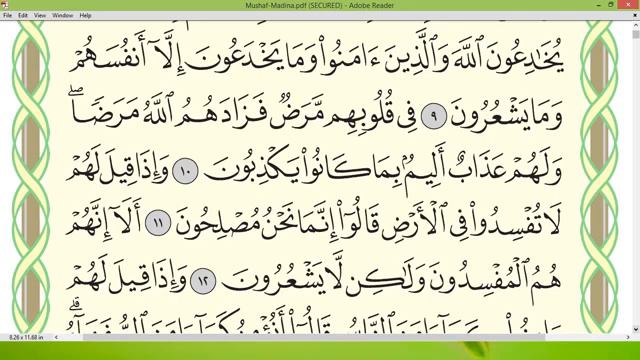 Mushaf-Madina.pdf (SECURED) - Adobe Reader
File Edit View Window Help
يُخَٰدِعُونَ ٱللَّهَ وَٱلَّذِينَ ءَامَنُوا۟ وَمَا يَخْدَعُونَ إِلَّآ أَنفُسَهُمْ
وَمَا يَشْعُرُونَ ٩ فِى قُلُوبِهِم مَّرَضٌ فَزَادَهُمُ ٱللَّهُ مَرَضًا ۖ
وَلَهُمْ عَذَابٌ أَلِيمٌۢ بِمَا كَانُوا۟ يَكْذِبُونَ ١٠ وَإِذَا قِيلَ لَهُمْ
لَا تُفْسِدُوا۟ فِى ٱلْأَرْضِ قَالُوٓا۟ إِنَّمَا نَحْنُ مُصْلِحُونَ ١١ أَلَآ إِنَّهُمْ
هُمُ ٱلْمُفْسِدُونَ وَلَٰكِن لَّا يَشْعُرُونَ ١٢ وَإِذَا قِيلَ لَهُمْ
8.26 x 11.68 in